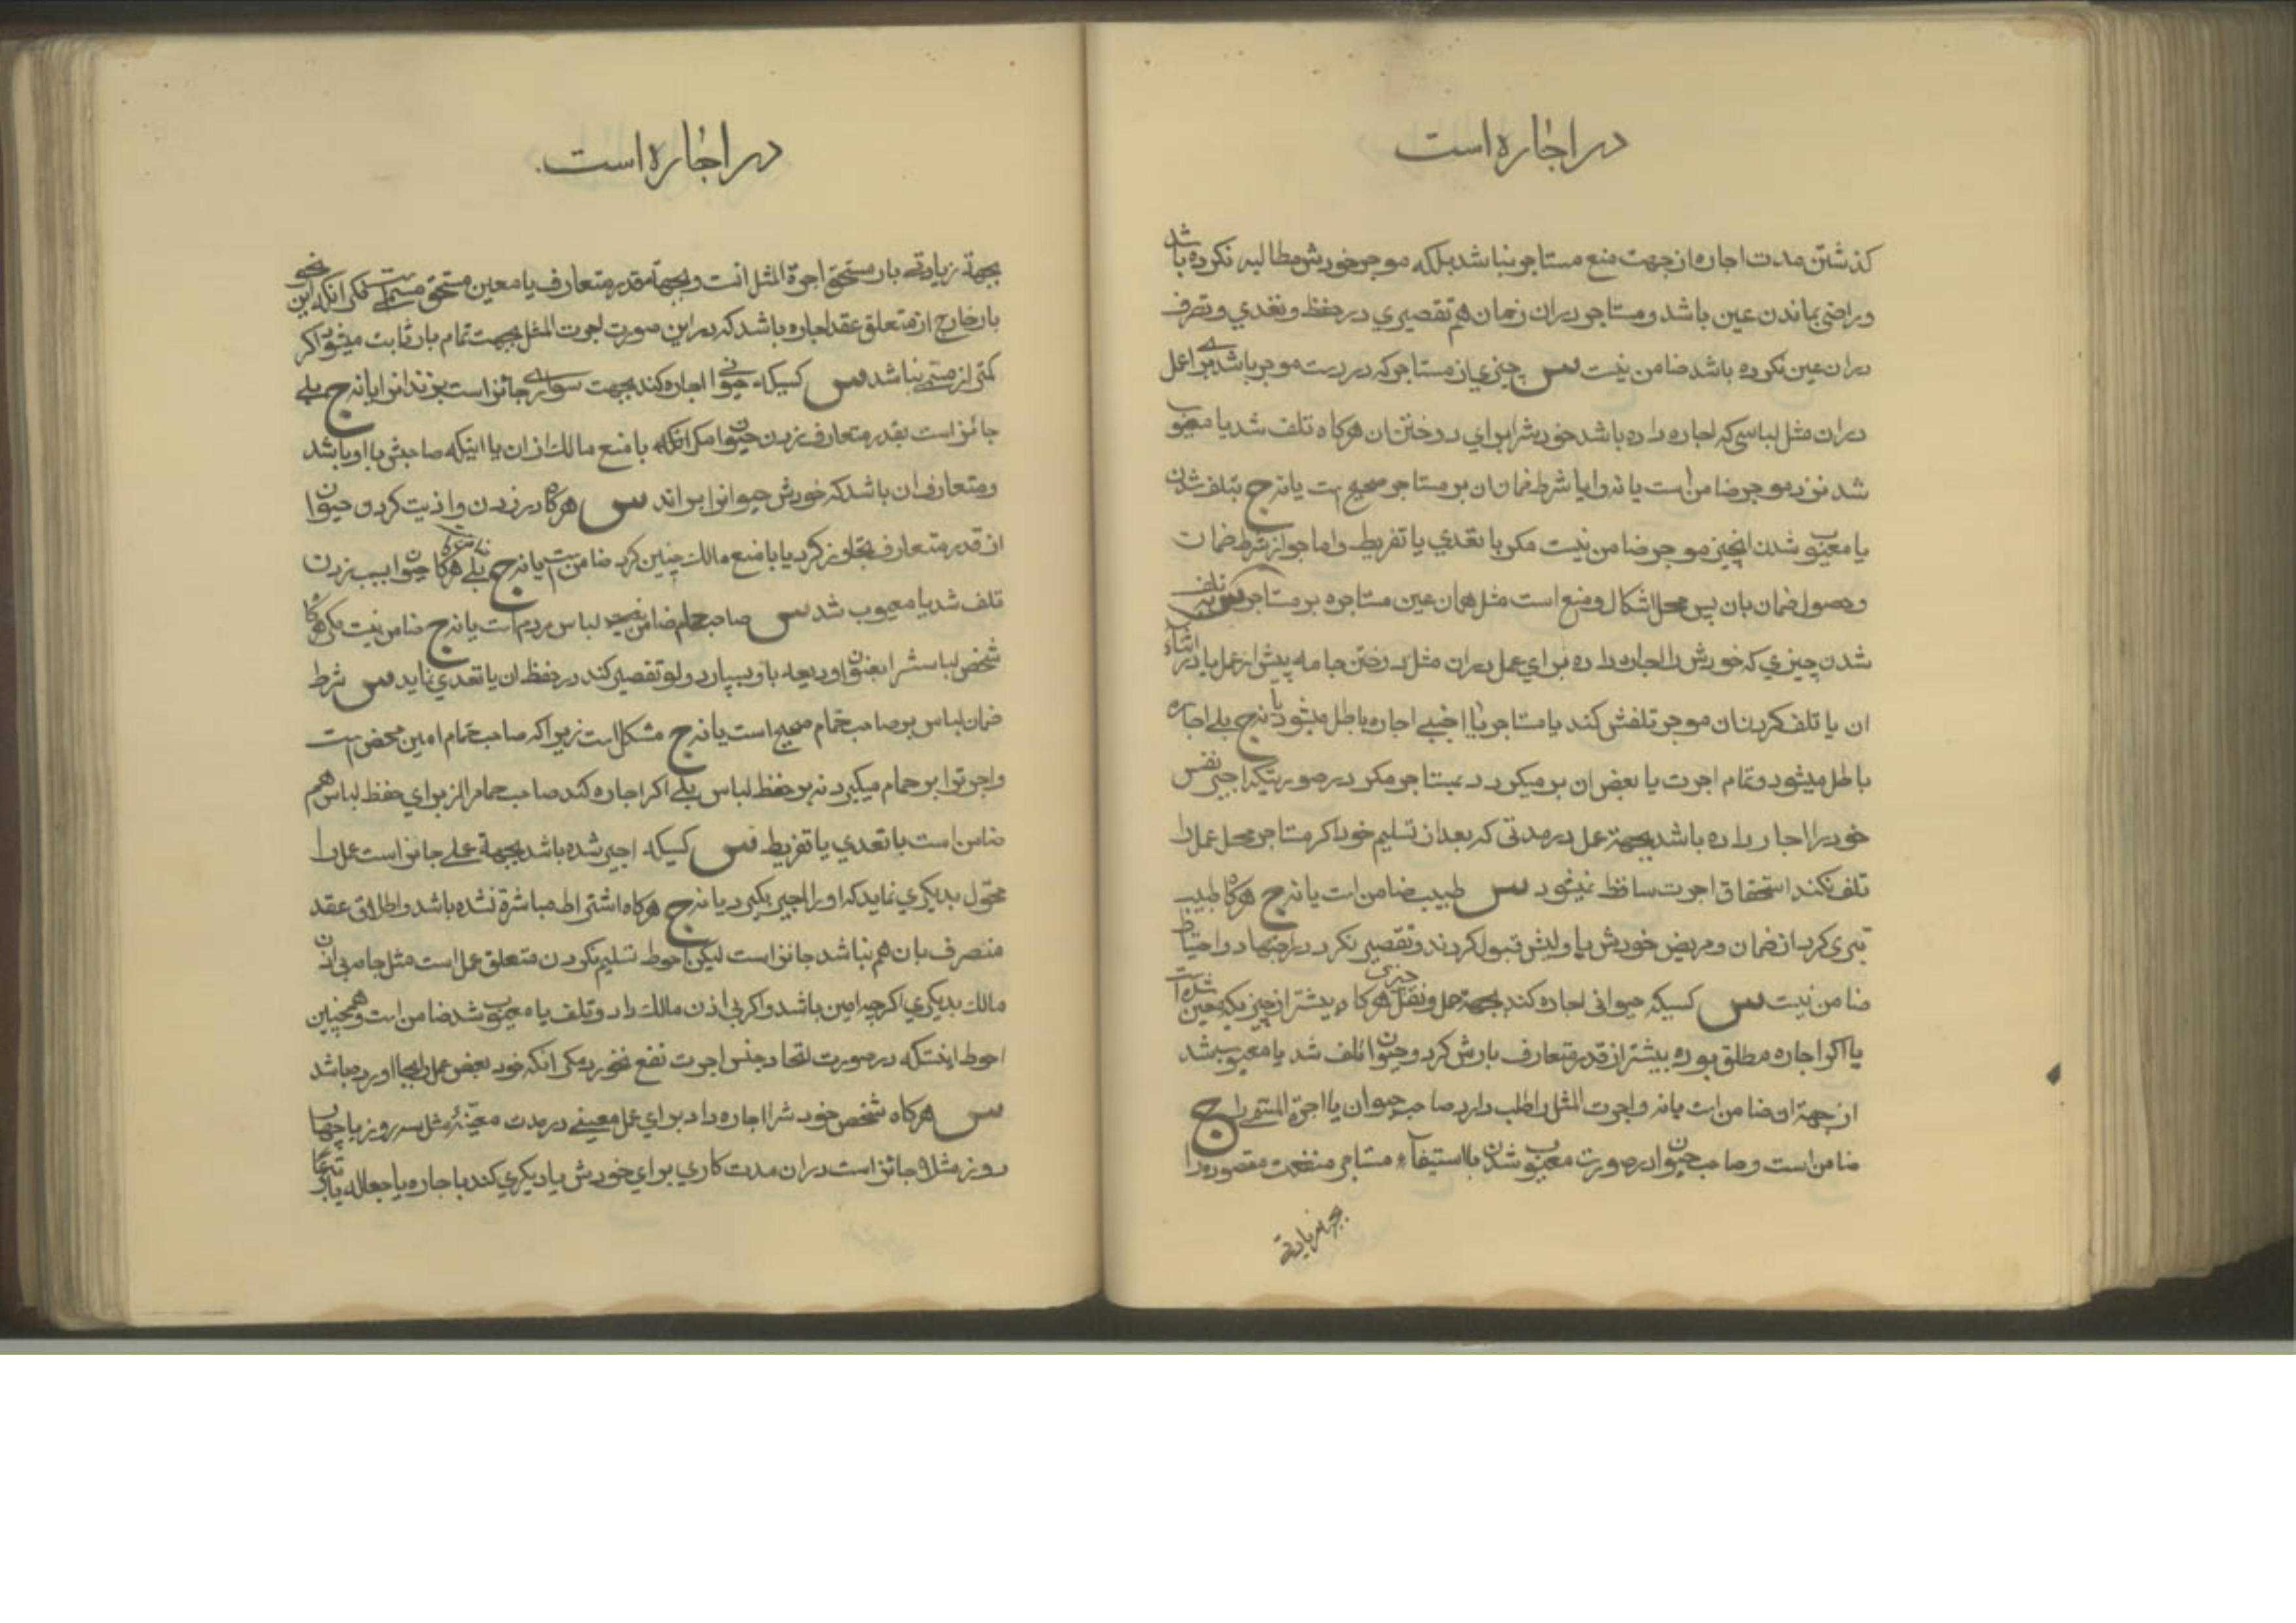 در اجاره است
کذشتن مدت اجاره از جهت منع مستاجر نباشد بلکه موجر خودش مطالبه نکرده باشد
و راضی بماندن عین باشد و مستاجر دران زمان هم تقصیری در حفظ و تعدی و تصرف
دران عین نکرده باشد ضامن نیست س چیزی از مستاجر که در دست موجر باشد برای عمل
دران مثل لباسی که اجاره داده باشد خودش را برای دوختن ان هرکاه تلف شد یا معیوب
شد نزد موجر ضامن است یا نه و ایا شرط ضمان ان بر مستاجر صحیح است یا نه ج بتلف شدن
یا معیوب شدن انچیز موجر ضامن نیست مکر با تعدی یا تفریط و اما جواز شرط ضمان
و حصول ضمان بان پس محل اشکال و منع است مثل همان عین مستاجره بر مستاجر س تلف
شدن چیزی که خودش را اجاره داده برای عمل دران مثل دوختن جامه پیش از عمل یا در اثناء
ان یا تلف کردن ان موجر تلفش کند یا مستاجر یا اجنبی اجاره باطل میشود یا نه ج بلی اجاره
باطل میشود و تمام اجرت یا بعض ان بر میکردد بمستاجر مکر در صورتیکه اجیر نفس
خود را اجاره داده باشد بجهة عمل در مدتی که بعد از تسلیم خود اکر مستاجر محل عمل را
تلف نکند استحقاق اجرت ساقط نمیشود س طبیب ضامن است یا نه ج هرکاه طبیب
تبری کرد از ضمان و مریض خودش یا ولیش قبول کردند و تقصیر نکرد در اجتهاد و احتیاط
ضامن نیست س کسیکه حیوانی اجاره کند بجهة حمل و نقل چیزی هرکاه بیشتر از چیزیکه معین شده است
یا اکر اجاره مطلق بوده بیشتر از قدر متعارف بارش کرد و حیوان تلف شد یا معیوب شد
از جهة ان ضامن است یا نه و اجرت المثل را طلب دارد صاحب حیوان یا اجرة المسمی را ج
ضامن است و صاحب حیوان در صورت معیوب شدن با استیفاء مستاجر منفعت مقصوده را
بجهة زیادتی
در اجاره است
بجهة زیادتی بار مستحق اجرة المثل انست و بجهة قدر متعارف یا معین مستحق مسمی است مکر انکه این نحو
بار خارج از متعلق عقد اجاره باشد که در این صورت اجرت المثل بجهت تمام بار ثابت میشود اکر
کمتر از مسمی نباشد س کسیکه حیوانی را اجاره کند بجهت سواری جائز است بزند انرا یا نه ج بلی
جائز است بقدر متعارف زدن حیوان مکر انکه با منع مالک از ان یا اینکه صاحبش با او باشد
و متعارف ان باشد که خودش حیوانرا براند س هرکاه در زدن و اذیت کردن حیوان
از قدر متعارف تجاوز کرد یا با منع مالک چنین کرد ضامن است یا نه ج بلی هرکاه حیوان بسبب زدن
تلف شد یا معیوب شد س صاحب حمام ضامن لباس مردم است یا نه ج ضامن نیست مکر هرکاه
شخص لباسش را بعنوان ودیعه باو بسپارد و او تقصیر کند در حفظ ان یا تعدی نماید س شرط
ضمان لباس بر صاحب حمام صحیح است یا نه ج مشکل است زیرا که صاحب حمام امین محض است
و اجرت را بر حمام میکیرد نه بر حفظ لباس بلی اکر اجاره کند صاحب حمام را از برای حفظ لباس هم
ضامن است با تعدی یا تفریط س کسیکه اجیر شده باشد بجهة عملی جائز است عمل را
محول بدیکری نماید که او را اجیر بکیرد یا نه ج هرکاه اشتراط مباشرة نشده باشد و اطلاق عقد
منصرف بان هم نباشد جائز است لیکن احوط تسلیم نکردن متعلق عمل است مثل جامه بی اذن
مالک بدیکری اکرچه امین باشد و اکر بی اذن مالک داد و تلف یا معیوب شد ضامن است و همچنین
احوط اینستکه در صورت اتحاد جنس اجرت نفع نخورد مکر انکه خود بعض عمل را بجا اورده باشد
س هرکاه شخص خودش را اجاره داد برای عمل معینی در مدت معینه مثل سه روز یا چهار
روز مثلا جائز است دران مدت کاری برای خودش یا دیکری کند باجاره یا جعاله یا تبرعا